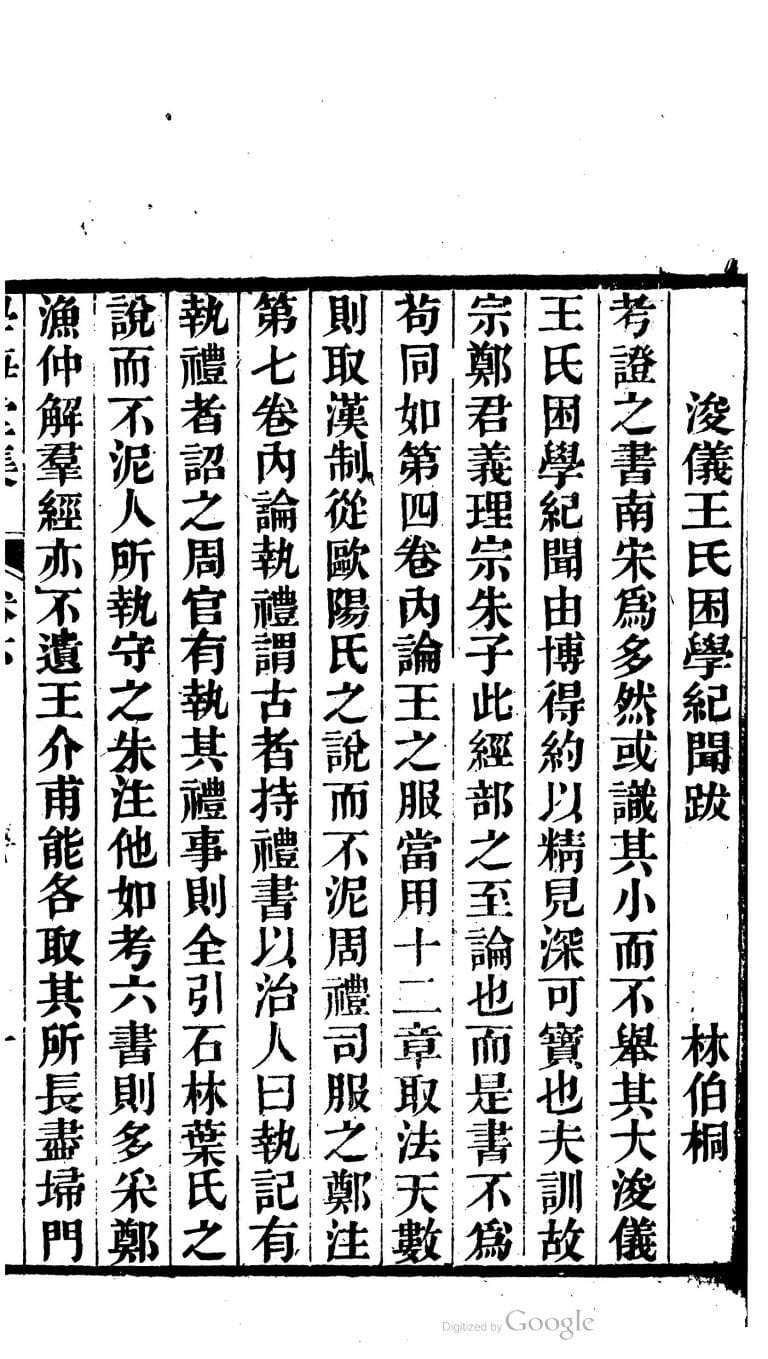 浚儀王氏困學紀聞跋　林伯桐
考證之書南宋爲多然或識其小而不舉其大浚儀
王氏困學紀聞由博得約以精見深可寶也夫訓故
宗鄭君義理宗朱子此經部之至論也而是書不爲
苟同如第四卷內論王之服當用十二章取法天數
則取漢制從歐陽氏之說而不泥周禮司服之鄭注
第七卷內論執禮謂古者持禮書以治人曰執記有
執禮者詔之周官有執其禮事則全引石林葉氏之
說而不泥人所執守之朱注他如考六書則多采鄭
漁仲解羣經亦不遺王介甫能各取其所長盡埽門
Digitized by Google